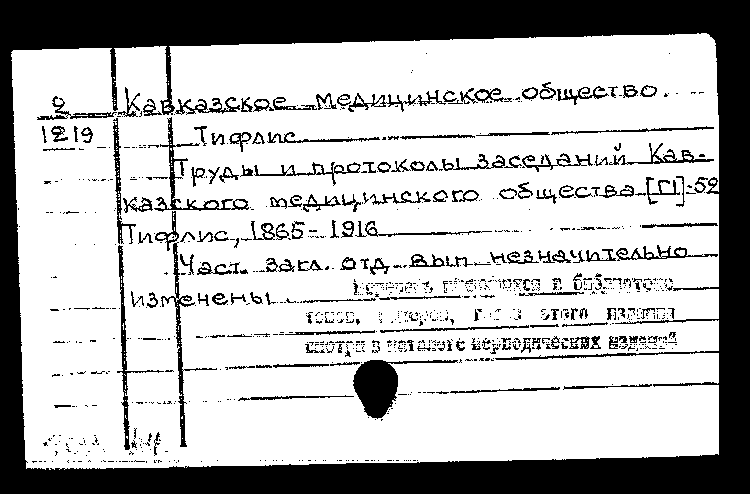 2 Кавказское медицинское общество.
1219 Тифлис.
Труды и протоколы заседаний Кав-
казского медицинского общества [Г1]-52
Тифлис, 1865-1916
Част. загл. отд. вып незначительно
изменены.
имеющихся в библиотеке
томов, номеров, этого издания
смотри в каталоге периодических изданий